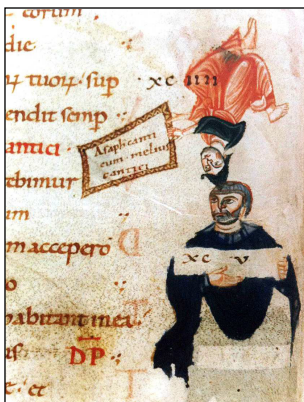 corum
die
ꝝ tuoꝝ · sup xc iiii
endit semp
antici
Asaph canti
cum · melius
cantici
ebimur
im
m accepero
xc v
o
habitant in ea
DP
et